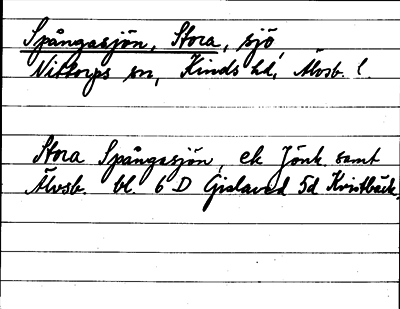 Spångasjön, Stora, sjö
Nittorps sn, Kinds hd, Älvsb. l.
Stora Spångasjön, ek Jönk. samt
Älvsb. bl. 6 D Gislaved 5d Kvistbäck.